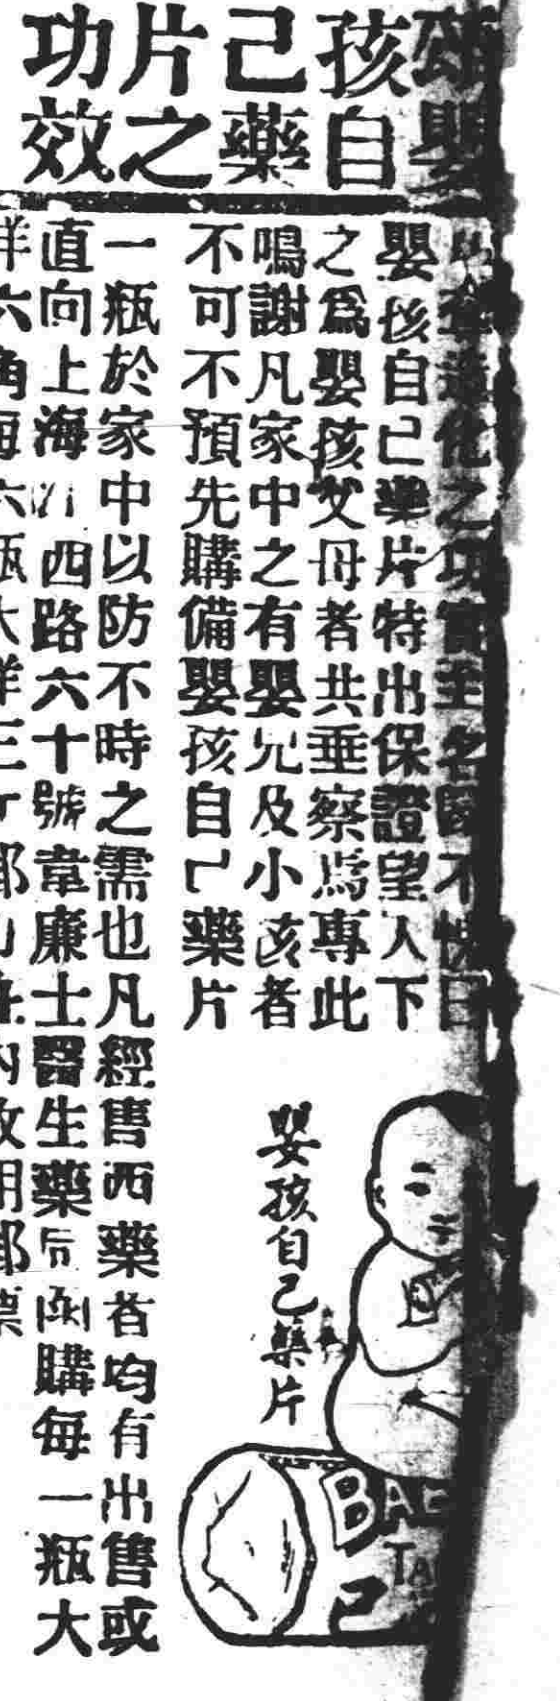 頌嬰
孩自
己藥
片之
功效
奪造化之功實至名歸不愧曰
嬰孩自己藥片特出保證望人下
之爲嬰孩父母者共垂察焉專此
鳴謝凡家中之有嬰兒及小孩者
不可不預先購備嬰孩自己藥片
一瓶於家中以防不時之需也凡經售西藥者均有出售或
直向上海江西路六十號韋廉士醫生藥局函購每一瓶大
洋六角每六瓶大洋三 郵 在內收用郵票
嬰孩自己藥片
BA
TA
己